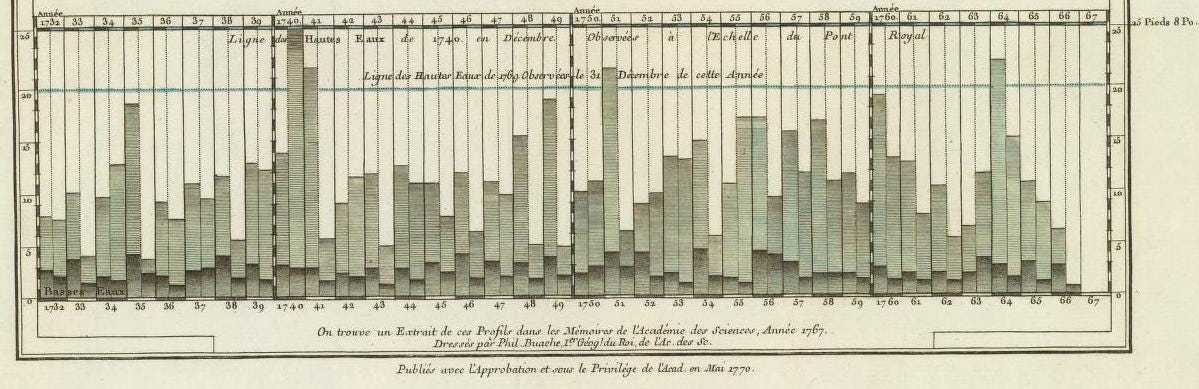 Année Année Année Année
1732 33 34 35 36 37 38 39 1740. 41 42 43 44 45 46 47 48 49 1750. 51 52 53 54 55 56 57 58 59 1760. 61 62 63 64 65 66 67
25 Pieds 8 Po
25 Ligne des Hautes Eaux de 1740. en Décembre. Observées à l'Echelle du Pont Royal 25
Ligne des Hautes Eaux de 1769. Observées le 31 Décembre de cette Année
20 20
15 15
10 10
5 5
Basses Eaux
0 0
1732 33 34 35 36 37 38 39 1740 41 42 43 44 45 46 47 48 49 1750 51 52 53 54 55 56 57 58 59 1760 61 62 63 64 65 66 67
On trouve un Extrait de ces Profils dans les Mémoires de l'Académie des Sciences, Année 1767.
Dressés par Phil. Buache, 1er Géogr. du Roi, de l'Ac. des Sc.
Publiés avec l'Approbation et sous le Privilége de l'Acad. en Mai 1770.